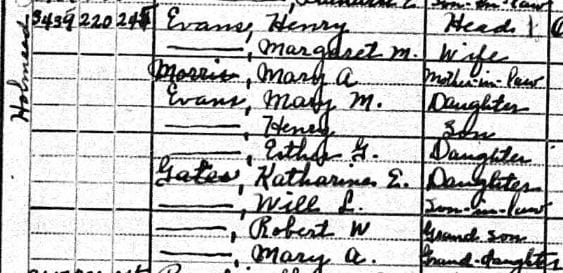 Son-in-law
Holmead 3439 220 245 Evans, Henry Head 1
———, Margaret M. Wife
Morris, Mary A. Mother-in-law
Evans, Mary M. Daughter
———, Henry Son
———, Esther G. Daughter
Gates, Katharine E. Daughter
———, Will L. Son-in-law
———, Robert W Grand son
———, Mary A. Grand-daughter